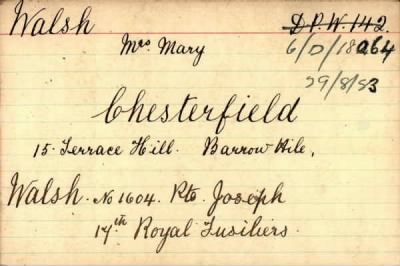 Walsh D.P.W. 142.
Mrs Mary 6/D/18064
29/8/53
Chesterfield
15. Terrace Hill. Barrow Hile,
Walsh. No 1604. Pte. Joseph
17th Royal Fusiliers.